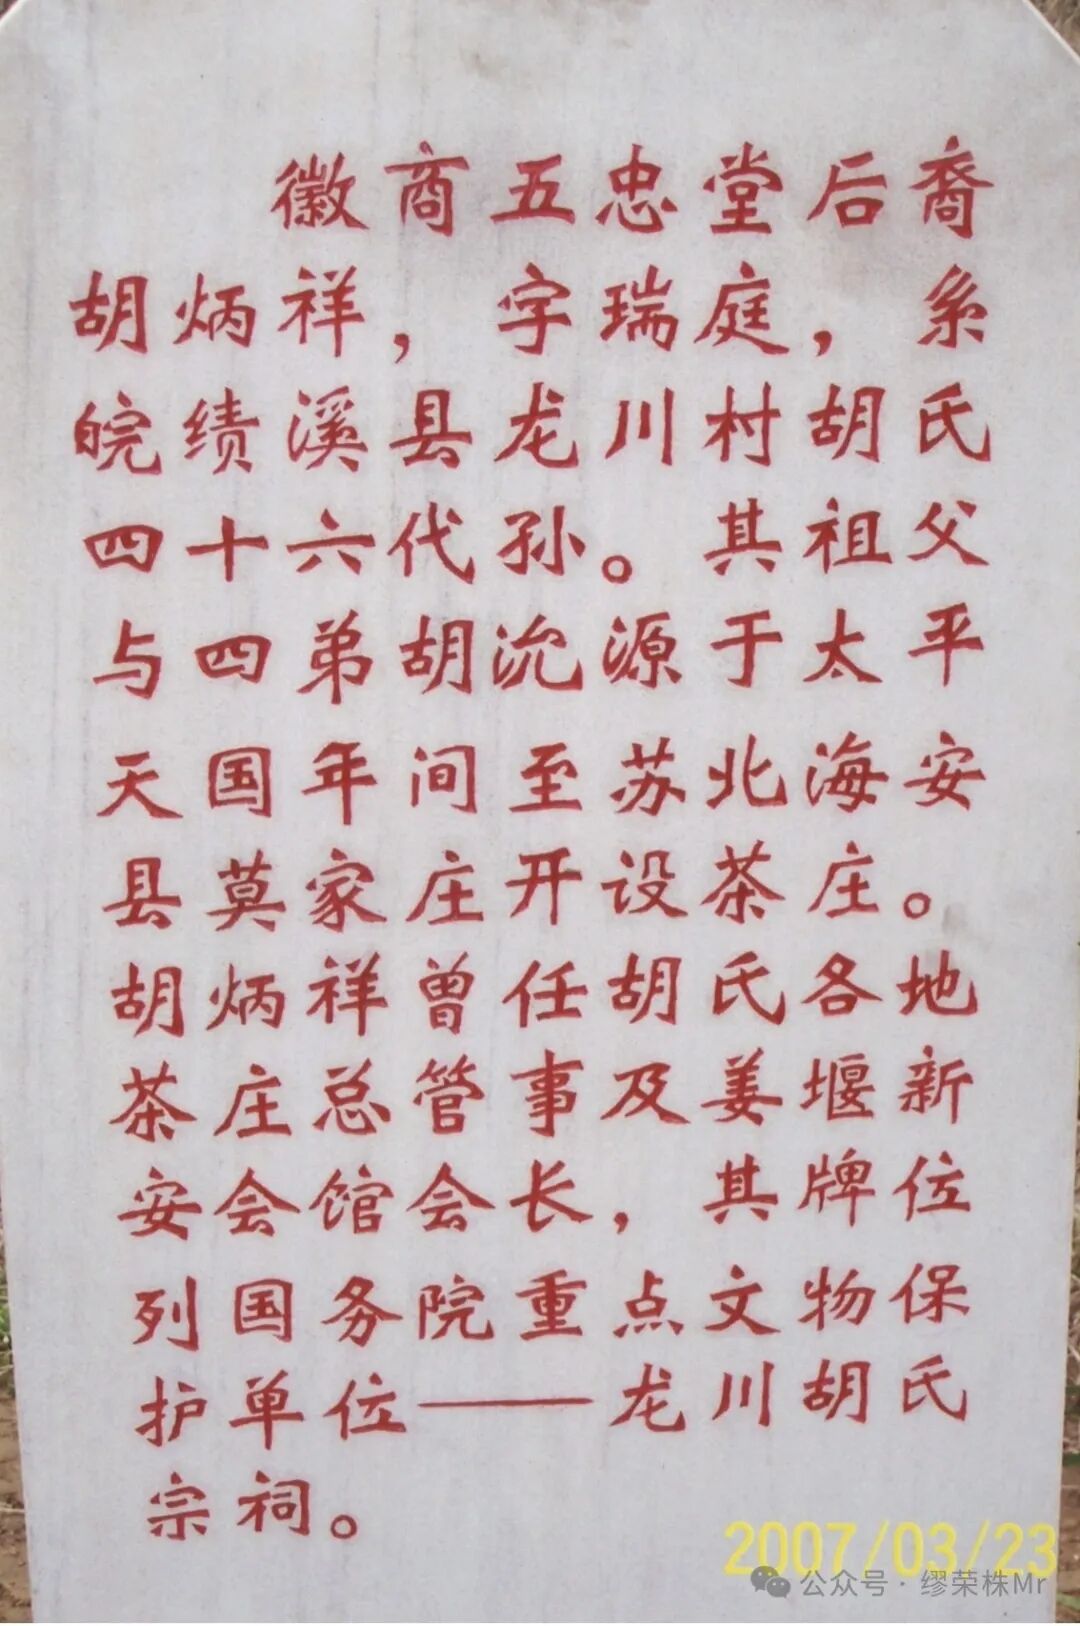 徽商五忠堂后裔
胡炳祥，字瑞庭，系
皖绩溪县龙川村胡氏
四十六代孙。其祖父
与四弟胡沇源于太平
天国年间至苏北海安
县莫家庄开设茶庄。
胡炳祥曾任胡氏各地
茶庄总管事及姜堰新
安会馆会长，其牌位
列国务院重点文物保
护单位——龙川胡氏
宗祠。
2007/03/23
公众号·缪荣株Mr